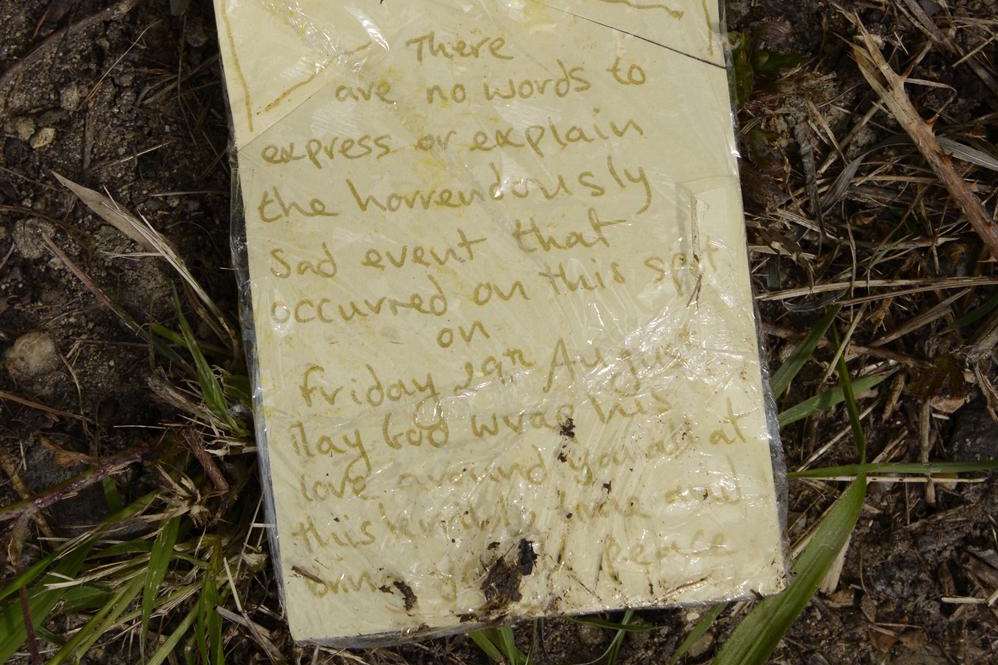 There
are no words to
express or explain
the horrendously
sad event that
occurred on this spot
on
Friday 29th August
May God wrap his
love around you all at
this time and
bring peace